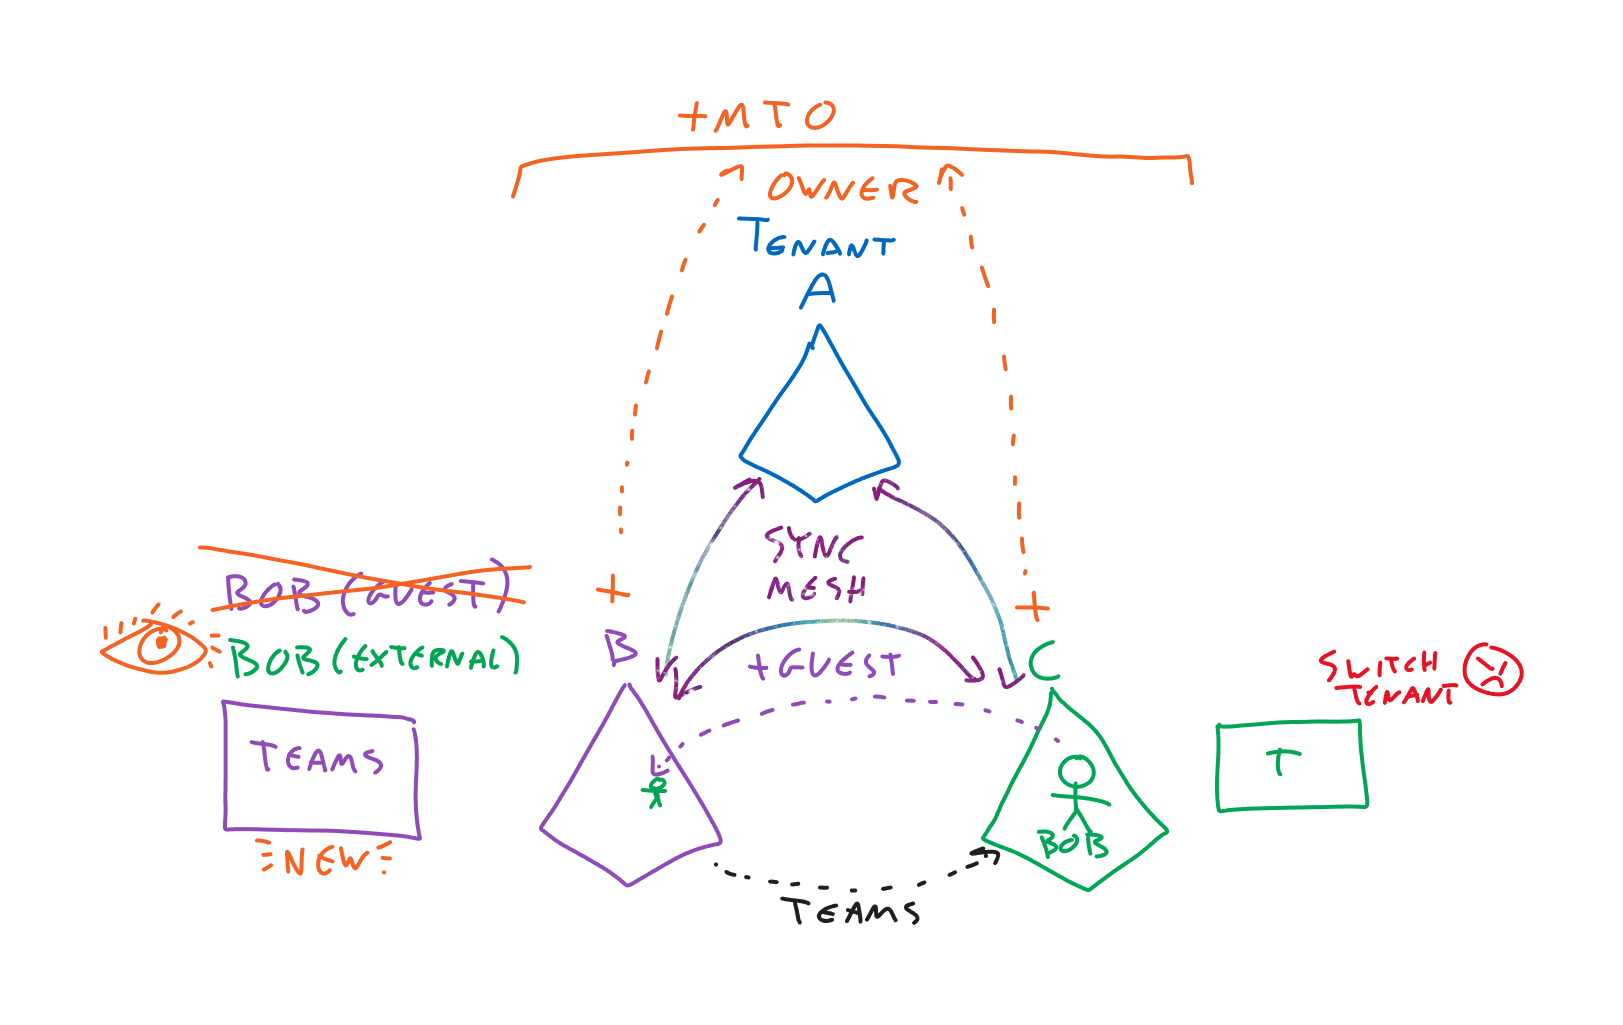 +MTO
OWNER
TENANT
A
SYNC
MESH
BOB (GUEST)
BOB (EXTERNAL)
B
+GUEST
C
SWITCH
TENANT
TEAMS
T
BOB
NEW
TEAMS